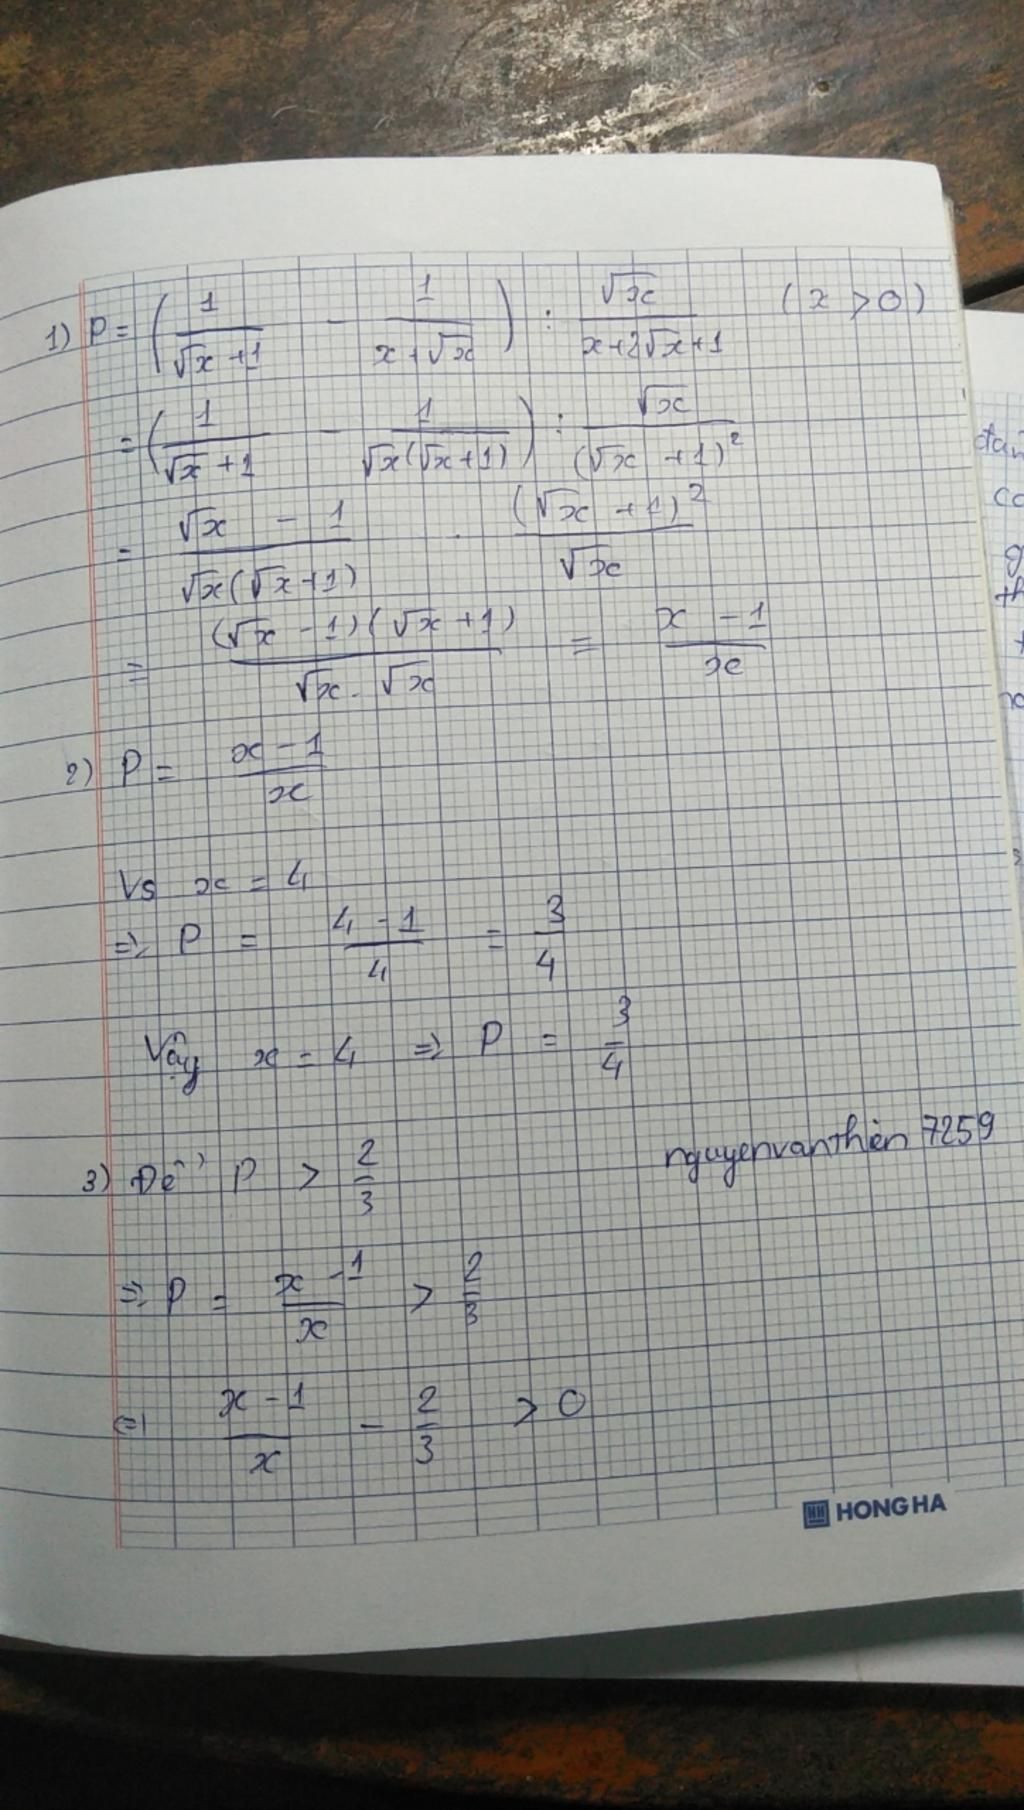 1) P = (1/(√x + 1) - 1/(x + √x)) : √x/(x + 2√x + 1) (x > 0)
= (1/(√x + 1) - 1/(√x(√x + 1))) : √x/(√x + 1)²
= (√x - 1)/(√x(√x + 1)) . (√x + 1)²/√x
= (√x - 1)(√x + 1)/(√x . √x) = (x - 1)/x
2) P = (x - 1)/x
Vs x = 4
=> P = (4 - 1)/4 = 3/4
Vậy x = 4 => P = 3/4
3) Để P > 2/3
nguyenvanthiên 7259
=> P = (x - 1)/x > 2/3
<=> (x - 1)/x - 2/3 > 0
HH HONG HA